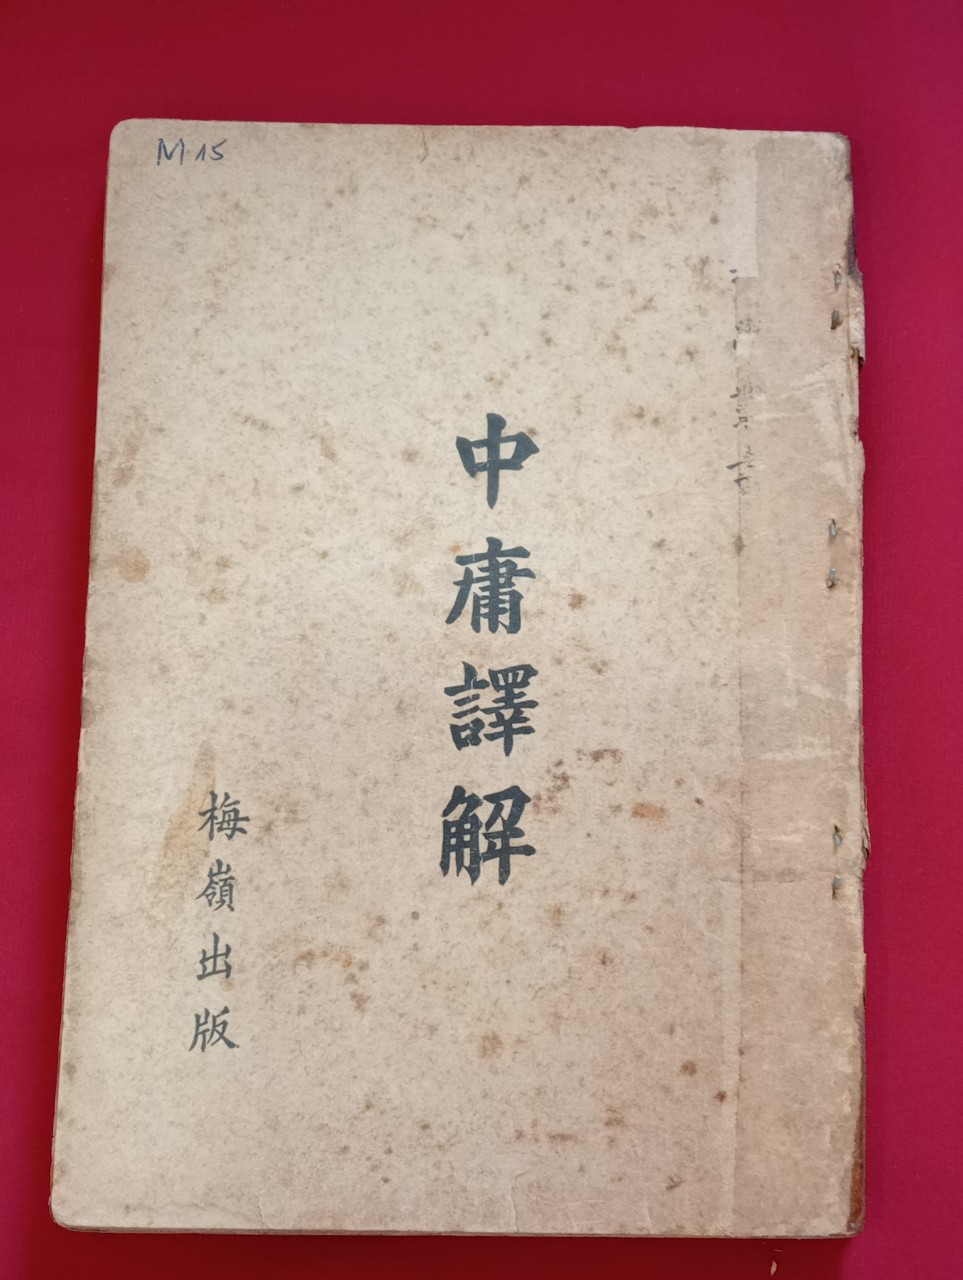 M.15
中庸譯解
梅嶺出版